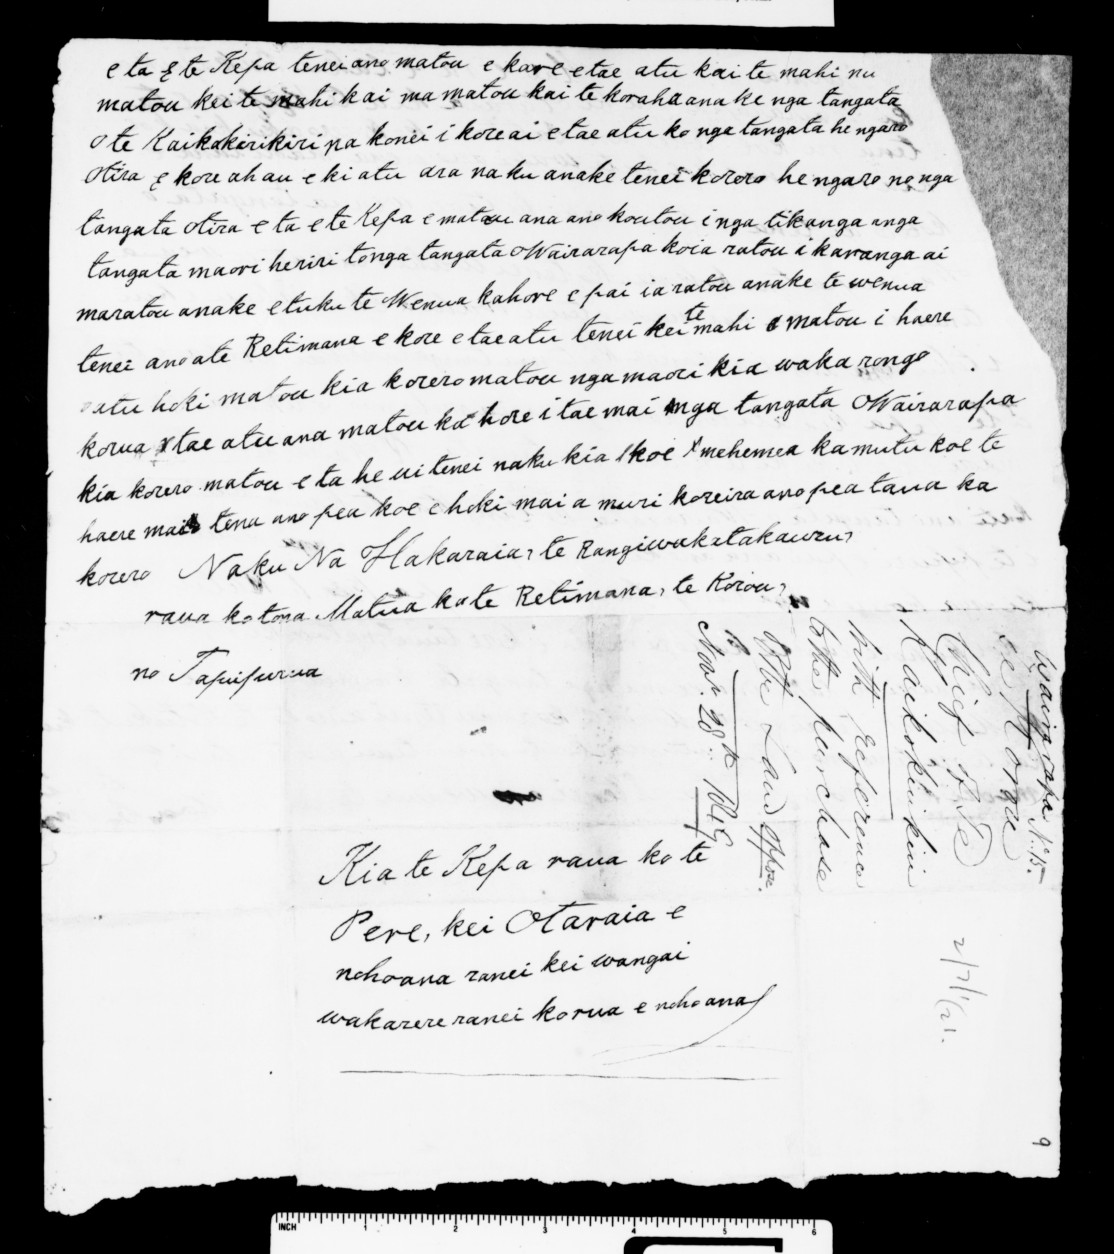 e ta e te Kepa tenei ano matou e kore e tae atu kai te mahi nu
matou kei te mahi kai ma matou kai te koraha ana ke nga tangata
o te Kaikokirikiri na konei i kore ai e tae atu ko nga tangata he ngaro
Otira e kore ahau e ki atu ara naku anake tenei korero he ngaro no nga
tangata otira e ta e te Kepa e matau ana ano koutou i nga tikanga anga
tangata maori he riri to nga tangata O Wairarapa koia ratou i karanga ai
ma ratou anake e tuku te Wenua kahore e pai ia ratou anake te wenua
tenei ano ate Retimana e kore e tae atu tenei kei te mahi matou i haere
atu hoki matou kia korero matou nga maori kia waka rongo
korua tae atu ana matou ka hore i tae mai nga tangata O Wairarapa
kia korero matou e ta he ui tenei naku kia koe mehemea ka mutu koe te
haere mai tena ano pea koe e hoki mai a muri ko reira ano pea taua ka
korero Naku Na Hakaraia, te Rangiwakatakauru,
raua ko tona Matua ko te Retimana, te Korou,
no Tapuipurua
Kia te Kepa raua ko te
Pere, kei Otaraia e
noho ana ranei kei wangai
wakarere ranei korua e noho ana
Wairarapa No. 15.
Chief of Te
Kaikokirikiri
with reference
to the purchase
of the Land &c.
Novr. 28th 1849
2/7/21.
9
INCH 1 2 3 4 5 6